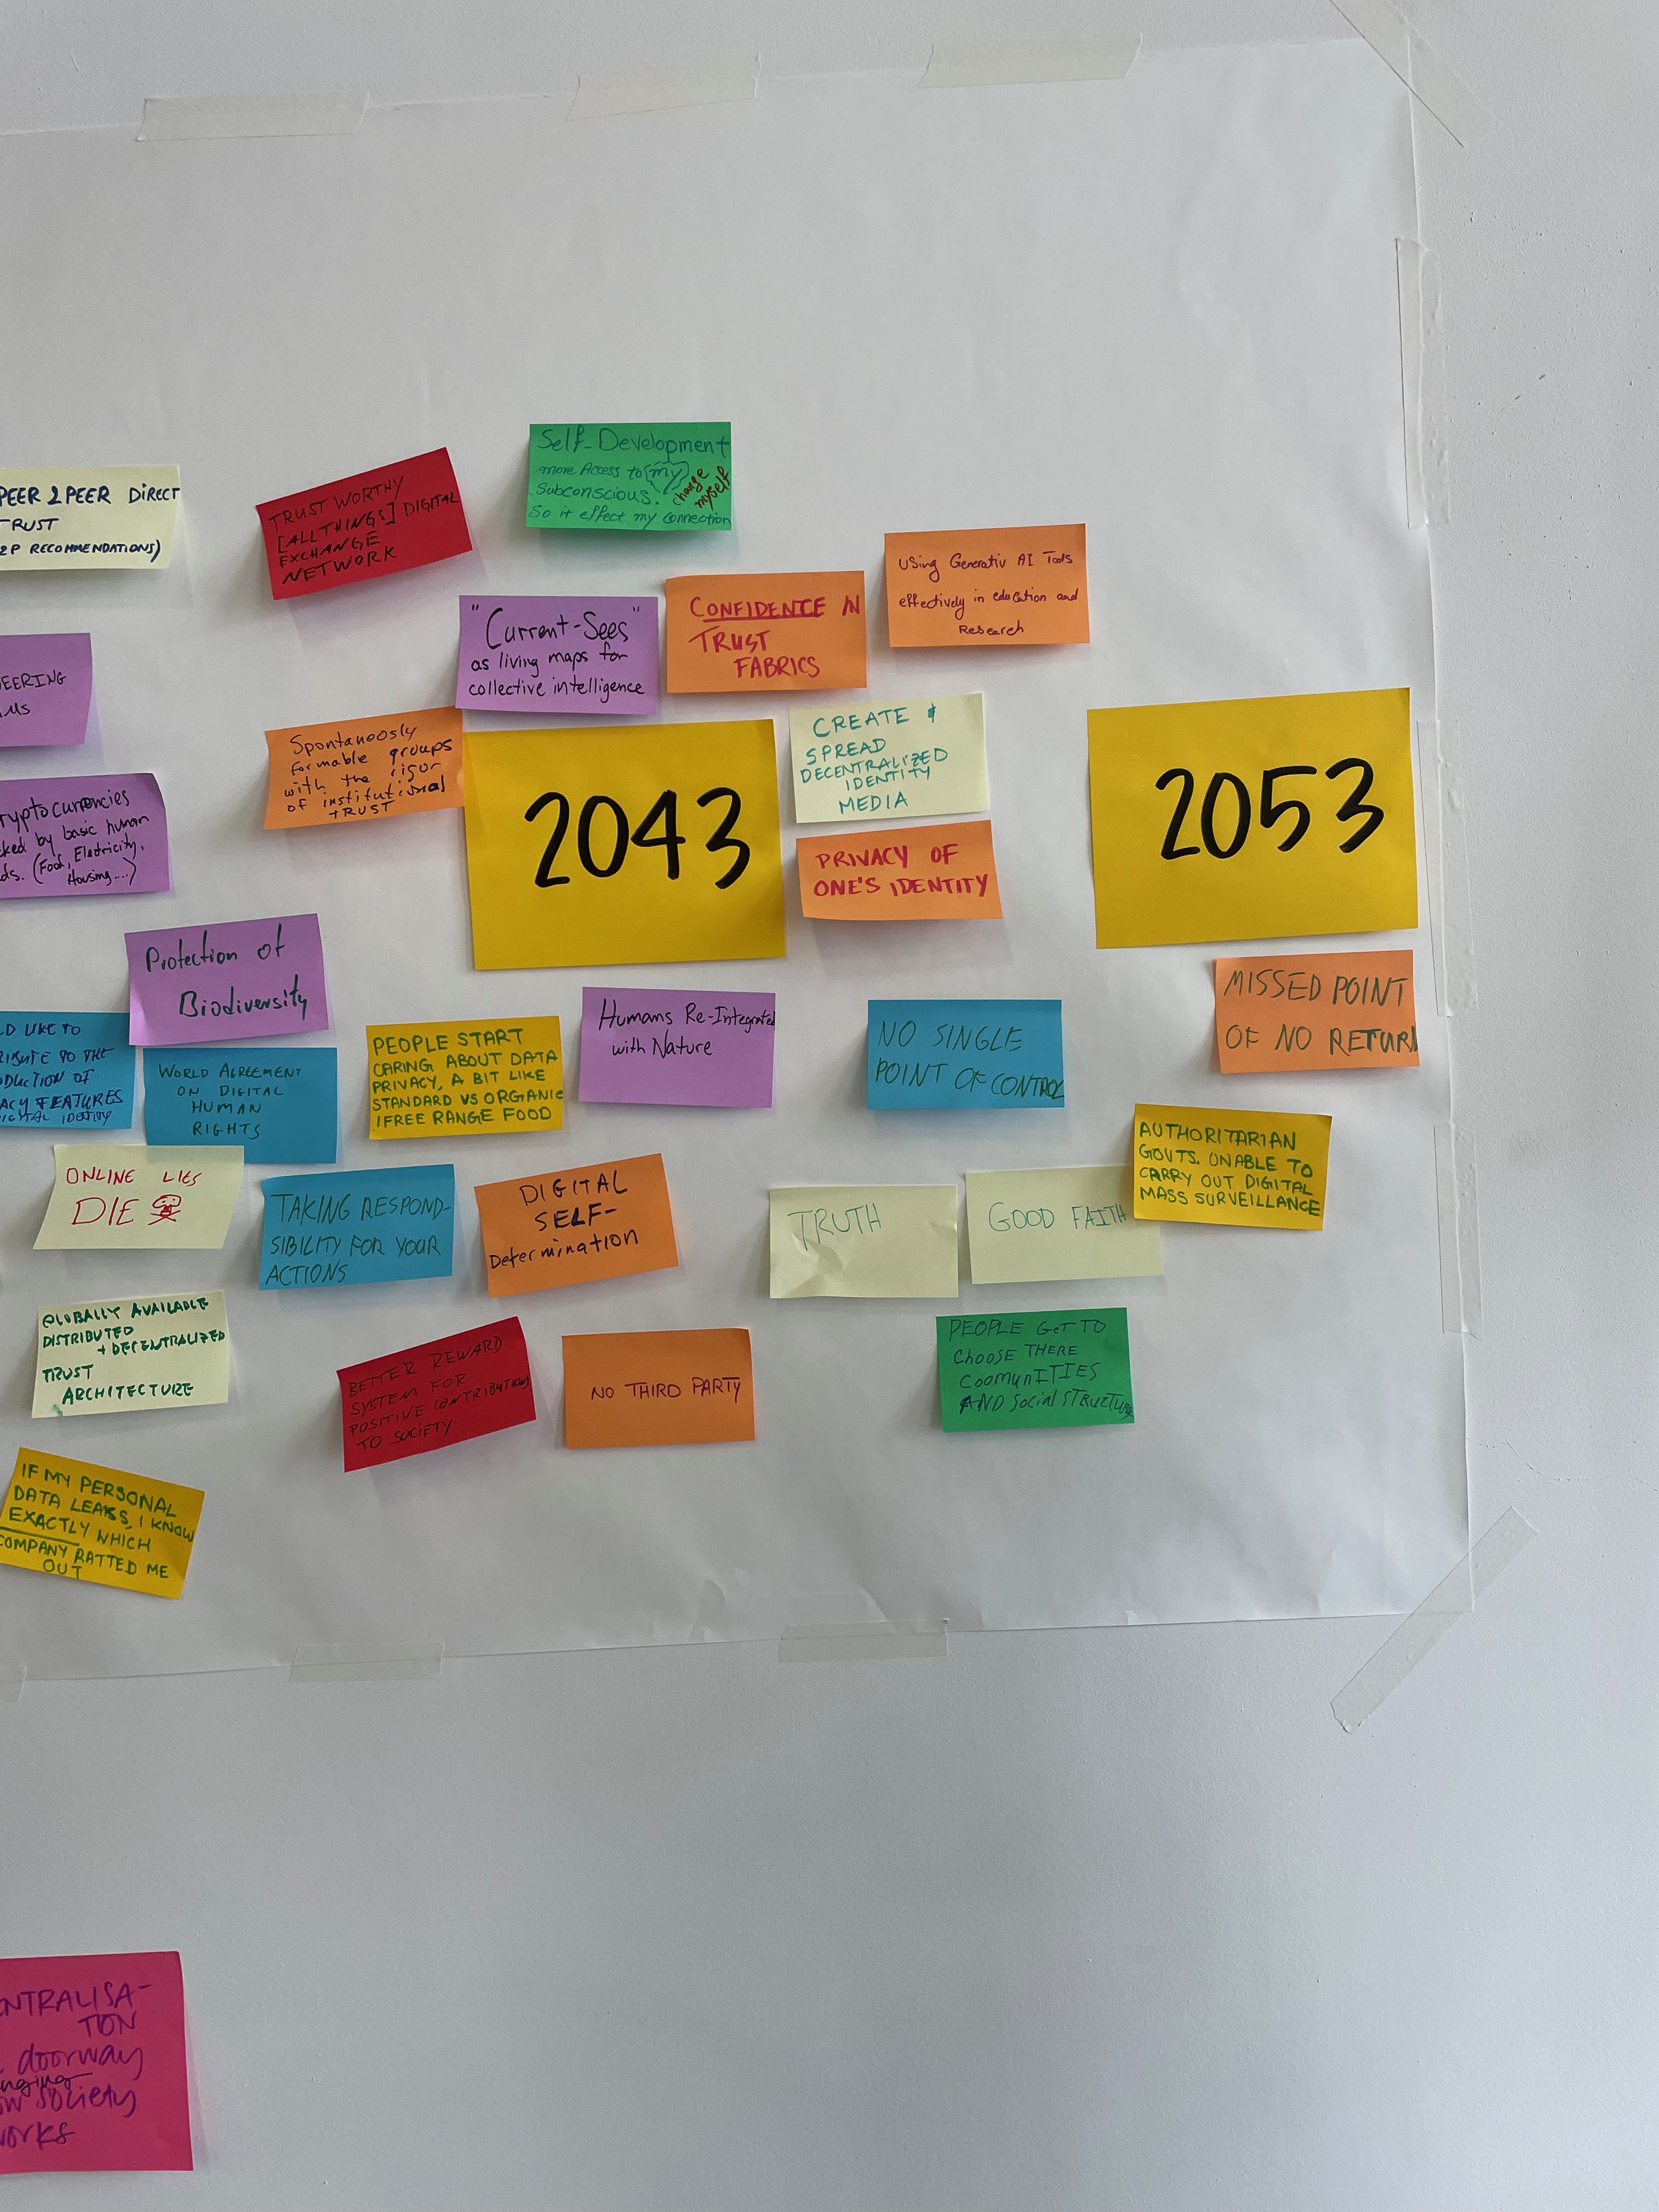 Self-Development
more Access to my
subconscious. change myself
So it effect my connection
PEER 2 PEER DIRECT
TRUST
2P RECOMMENDATIONS)
TRUST WORTHY
[ALL THINGS] DIGITAL
EXCHANGE
NETWORK
USing Generativ AI Tools
effectively in education and
Research
"Current-Sees"
as living maps for
collective intelligence
CONFIDENCE IN
TRUST
FABRICS
EERING
Spontaneosly
formable groups
with the rigor
of institutional
TRUST
2043
CREATE &
SPREAD
DECENTRALIZED
IDENTITY
MEDIA
2053
yptocurrencies
ked by basic human
ds. (Food, Electricity,
Housing....)
PRIVACY OF
ONE'S IDENTITY
Protection of
Biodiversity
MISSED POINT
OF NO RETURN
LD LIKE TO
IBUTE TO THE
DUCTION OF
ACY FEATURES
IGITAL IDENTITY
WORLD AGREEMENT
ON DIGITAL
HUMAN
RIGHTS
PEOPLE START
CARING ABOUT DATA
PRIVACY, A BIT LIKE
STANDARD VS ORGANIC
/FREE RANGE FOOD
Humans Re-Integrated
with Nature
NO SINGLE
POINT OF CONTROL
AUTHORITARIAN
GOVTS. UNABLE TO
CARRY OUT DIGITAL
MASS SURVEILLANCE
ONLINE LIES
DIE
TAKING RESPOND-
SIBILITY FOR YOUR
ACTIONS
DIGITAL
SELF-
Determination
TRUTH
GOOD FAITH
GLOBALLY AVAILABLE
DISTRIBUTED
+ DECENTRALIZED
TRUST
ARCHITECTURE
BETTER REWARD
SYSTEM FOR
POSITIVE CONTRIBUTION
TO SOCIETY
NO THIRD PARTY
PEOPLE GET TO
CHOOSE THERE
COOMUNITIES
AND Social STRUCTURE
IF MY PERSONAL
DATA LEAKS, I KNOW
EXACTLY WHICH
COMPANY RATTED ME
OUT
NTRALISA-
TION
doorway
nging
ow society
works